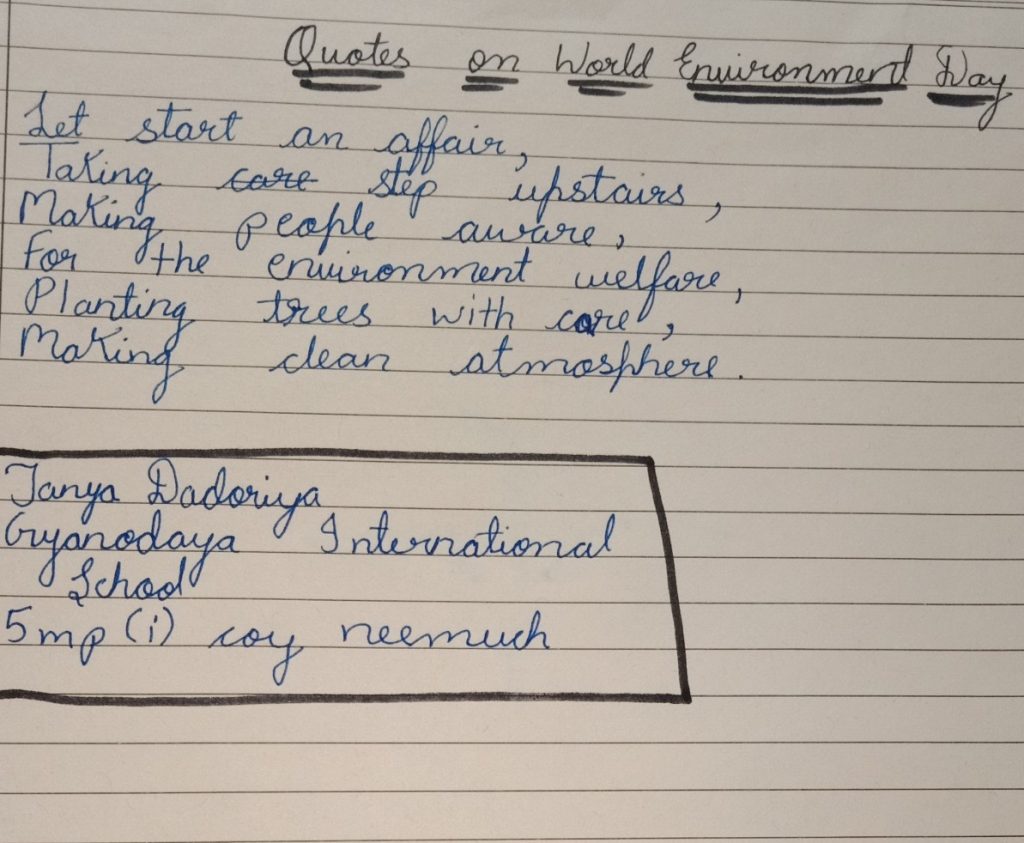 Quotes on World Environment Day
Let start an affair,
Taking care step upstairs,
Making people aware,
For the environment welfare,
Planting trees with care,
Making clean atmosphere.
Tanya Dadoriya
Gyanodaya International
School
5mp (i) coy neemuch